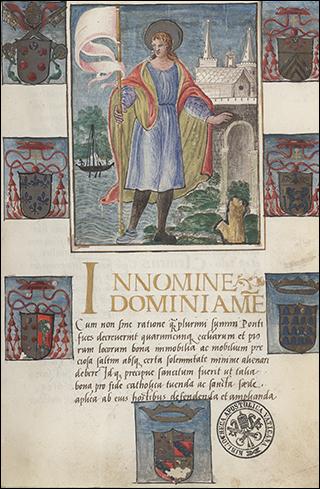 INNOMINE
DOMINIAME
Cum non sine ratione q̃plurimi summi Ponti
fices decreverint quarumcunq; ecclesiarum et pio
rum locorum bona immobilia ac mobilium pre
ciosa saltim absq; certa solemnitate minime alienari
debere Idq; precipue sancitum fuerit ut talia
bona pro fide catholica tuenda ac sancta sede
aplica ab eius hostibus defendenda et amplianda
BIBLIOTHECA APOSTOLICA VATICANA